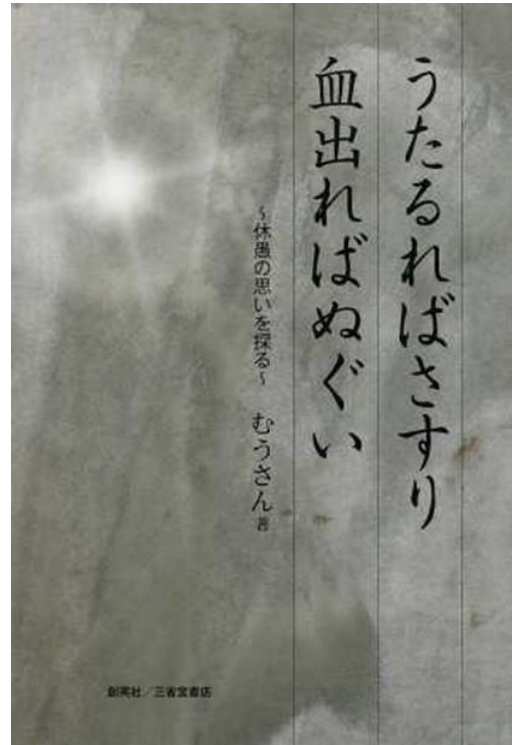 うたるればさすり
血出ればぬぐい
～休愚の思いを探る～ むうさん 著
創英社／三省堂書店